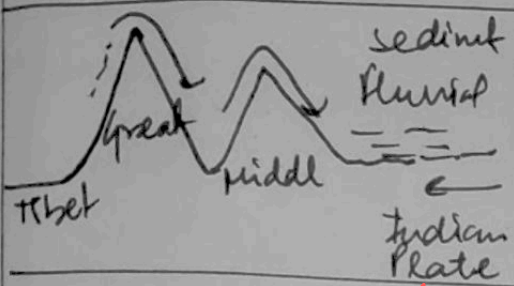 sedimt
fluvial
Great
Middl
Tibet
Indian
Plate